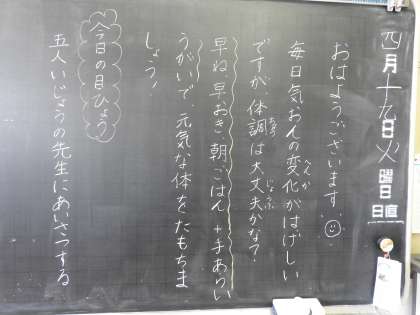 四月十九日火曜日
日直
おはようございます
毎日気おんの変化がはげしい
へんか
ですが、体調は大丈夫かな?
ちょう
じょうぶ
早ね、早おき、朝ごはん+手あらい
うがいで、元気な体をたもちま
しょう!
今日の目ひょう
五人いじょうの先生にあいさつする